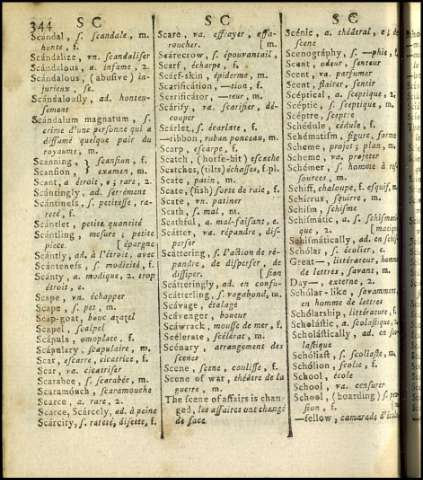 344
S C
Scándal, ſ. scandale, m.
honte, f.
Scándalize, vn. scandaliſer
Scándalous, a. infame, 2.
Scándalous, (abuſive) in-
jurieux, ſe.
Scándalously, ad. honteu-
sement
Scándalum magnatum, ſ.
crime d'une personne qui a
diffamé quelque pair du
royaume, m.
Scanning, } scanſion, f.
Scanſion, } examen, m.
Scant, a. étroit, e; rare, 2.
Scántingly, ad. serrément
Scántineſs, ſ. petiteſſe, ra-
reté, f.
Scántlet, petite quantité
Scántling, meſure, petite
piece. [épargne
Scántly, ad. à l'étroit, avec
Scántneſs, ſ. modicité, f.
Scánty, a. modique, 2. trop
étroit, e.
Scape, vn. échapper
Scape, ſ. pet, m.
Scap-goat, bouc azazel
Scapel, scalpel
Scápula, omoplate, f.
Scápulary, scapulaire, m.
Scar, escarre, cicatrice, f.
Scar, va. cicatriſer
Scarabee, ſ. scarabée, m.
Scaramoúch, scaramouche
Scarce, a. rare, 2.
Scarce, Scárcely, ad. à peine
Scárcity, ſ. rareté, diſette, f.
S C
Scare, va. effrayer, effa-
roucher. [m.
Scárecrow, ſ. épouvantail,
Scarf, écharpe, f.
Scarf-skin, épiderme, m.
Scarification, —tion, f.
Scarificátor, —teur, m.
Scárify, va. scarifier, dé-
couper
Scárlet, ſ. écarlate, f.
—ribbon, ruban ponceau, m.
Scarp, escarpe, f.
Scatch, (horſe-bit) eſcache
Scatches, (ſtilts) échaſſes, f.pl.
Scate, patin, m.
Scate, (fish) sorte de raie, f.
Scate, vn. patiner
Scath, ſ. mal, m.
Scathful, a. mal-faiſant, e.
Scátter, va. répandre, diſ-
perſer
Scáttering, ſ. l'action de ré-
pandre, de diſperſer, de
diſſiper. [ſion
Scátteringly, ad. en confu-
Scátterling, ſ. vagabond, m.
Scávage, étalage
Scávenger, boueur
Scáwrack, mouſſe de mer, f.
Scélerate, scélérat, m.
Scénary, arrangement des
scenes
Scene, scene, couliſſe, f.
Scene of war, théâtre de la
guerre, m.
The scene of affairs is chan-
ged, les affaires ont changé
de face
S C
Scénic, a. théâtral, e; de
scene
Scenography, ſ. —phie, f.
Scent, odeur, senteur
Scent, va. parfumer
Scent, flairer, sentir
Scéptical, a. sceptique, 2.
Scéptic, ſ. sceptique, m.
Scéptre, sceptre
Schédule, cédule, f.
Schématiſm, figure, forme
Scheme, projet; plan, m.
Scheme, va. projetter
Schémer, ſ. homme à reſ-
sources, m.
Schiff, chaloupe, f. eſquif,
Schirrus, squirre, m.
Schiſm, schiſme
Schiſmátic, a. ſ. schiſmati-
que, 2.
Schiſmátically, ad. en schiſ-
Schólar, ſ. écolier, e.
Great—, littérateur, homme
de lettres, savant, m.
Day—, externe, 2.
Schólar-like, savamment,
en homme de lettres
Schólarship, littérature, f.
Scholáſtic, a. scolaſtique,
Scholáſtically, ad.
laſtique
Schóliaſt, ſ. scoliaſte, m.
Schólion, scolie, f.
School, école
School, va. censurer
School, (boarding) ſ.
sion, f.
—fellow, camarade